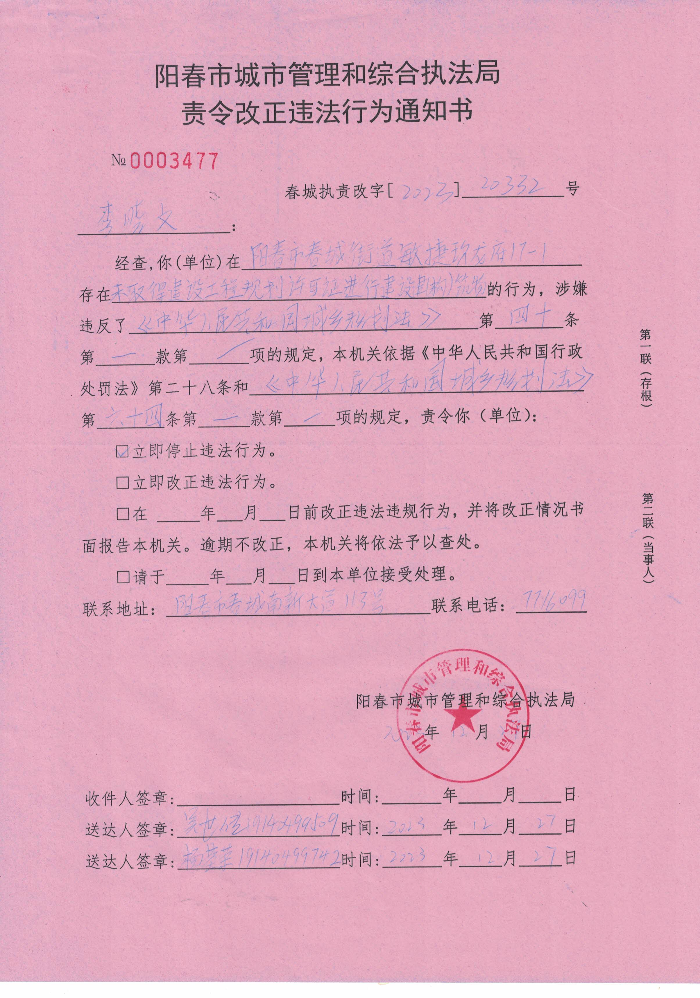 阳春市城市管理和综合执法局
责令改正违法行为通知书
№0003477
春城执责改字[2023]20332号
李晓文:
经查,你(单位)在阳春市春城街道敏捷玖龙府17-1
存在未取得建设工程规划许可证进行建设构筑物的行为,涉嫌
违反了《中华人民共和国城乡规划法》第四十条
第一款第/项的规定,本机关依据《中华人民共和国行政
处罚法》第二十八条和《中华人民共和国城乡规划法》
第六十四条第一款第一项的规定,责令你(单位):
☑立即停止违法行为。
□立即改正违法行为。
□在____年___月___日前改正违法违规行为,并将改正情况书
面报告本机关。逾期不改正,本机关将依法予以查处。
□请于____年___月___日到本单位接受处理。
联系地址:阳春市春城南新大道113号 联系电话:7716099
阳春市城市管理和综合执法局
年12月 日
阳春市城市管理和综合执法局
收件人签章:____时间:____年____月____日
送达人签章:19140499509时间:2023年12月27日
送达人签章:19140499742时间:2023年12月27日
第一联(存根)
第二联(当事人)